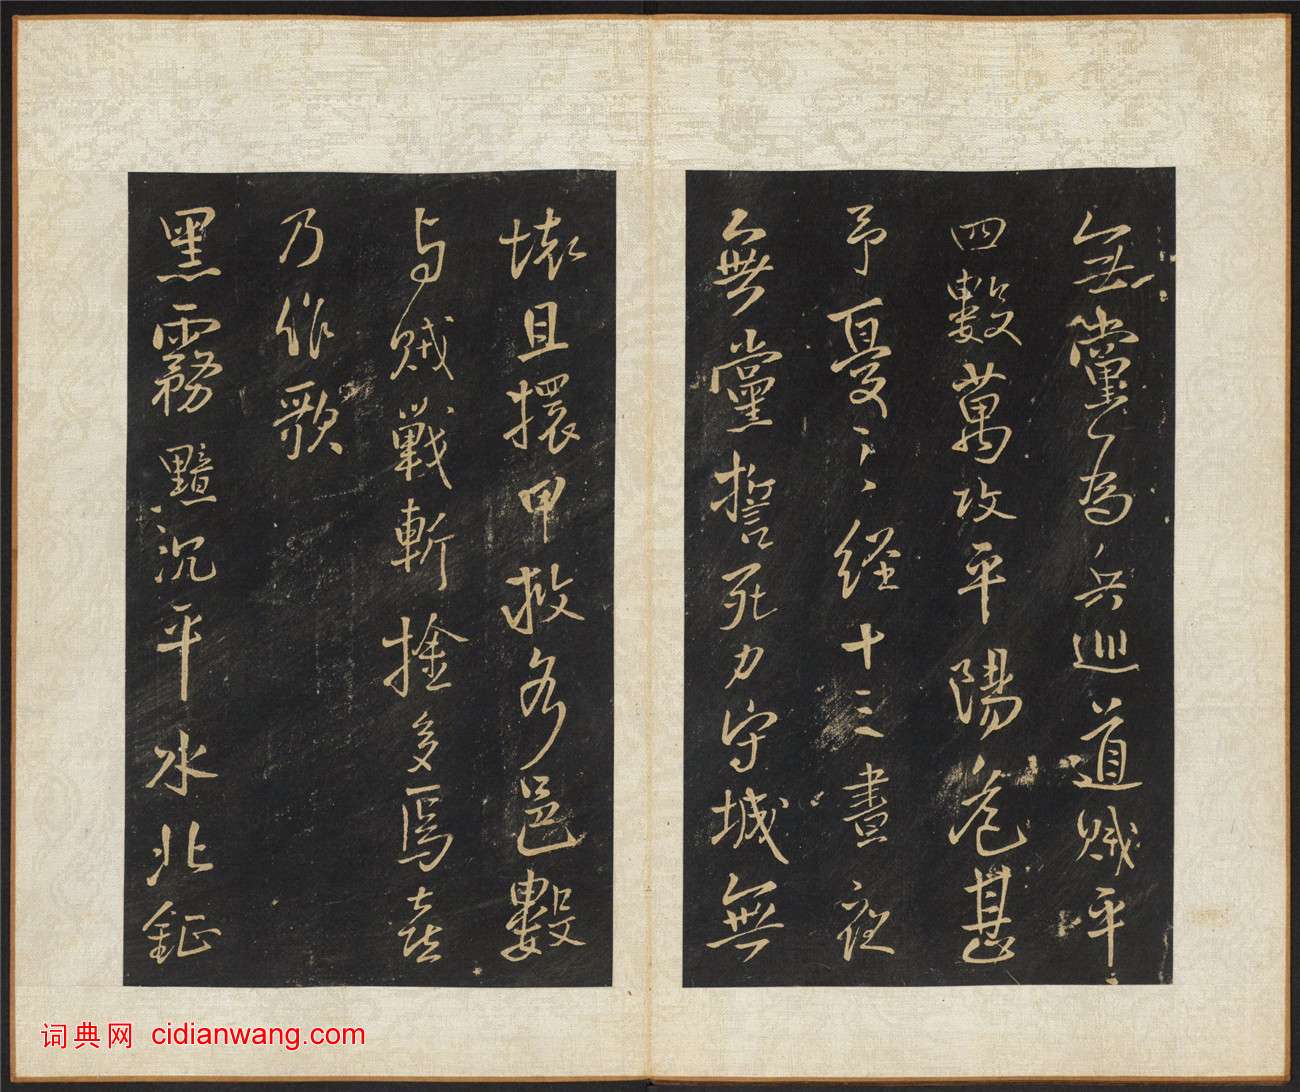 無黨爲兵巡道賊平
四數萬攻平陽危甚
予憂之經十三晝夜
無黨誓死力守城無
壞且擐甲救各邑數
与賊戰斬捨多焉喜
乃作歌
黑霧黯沉平水北鉦
词典网 cidianwang.com